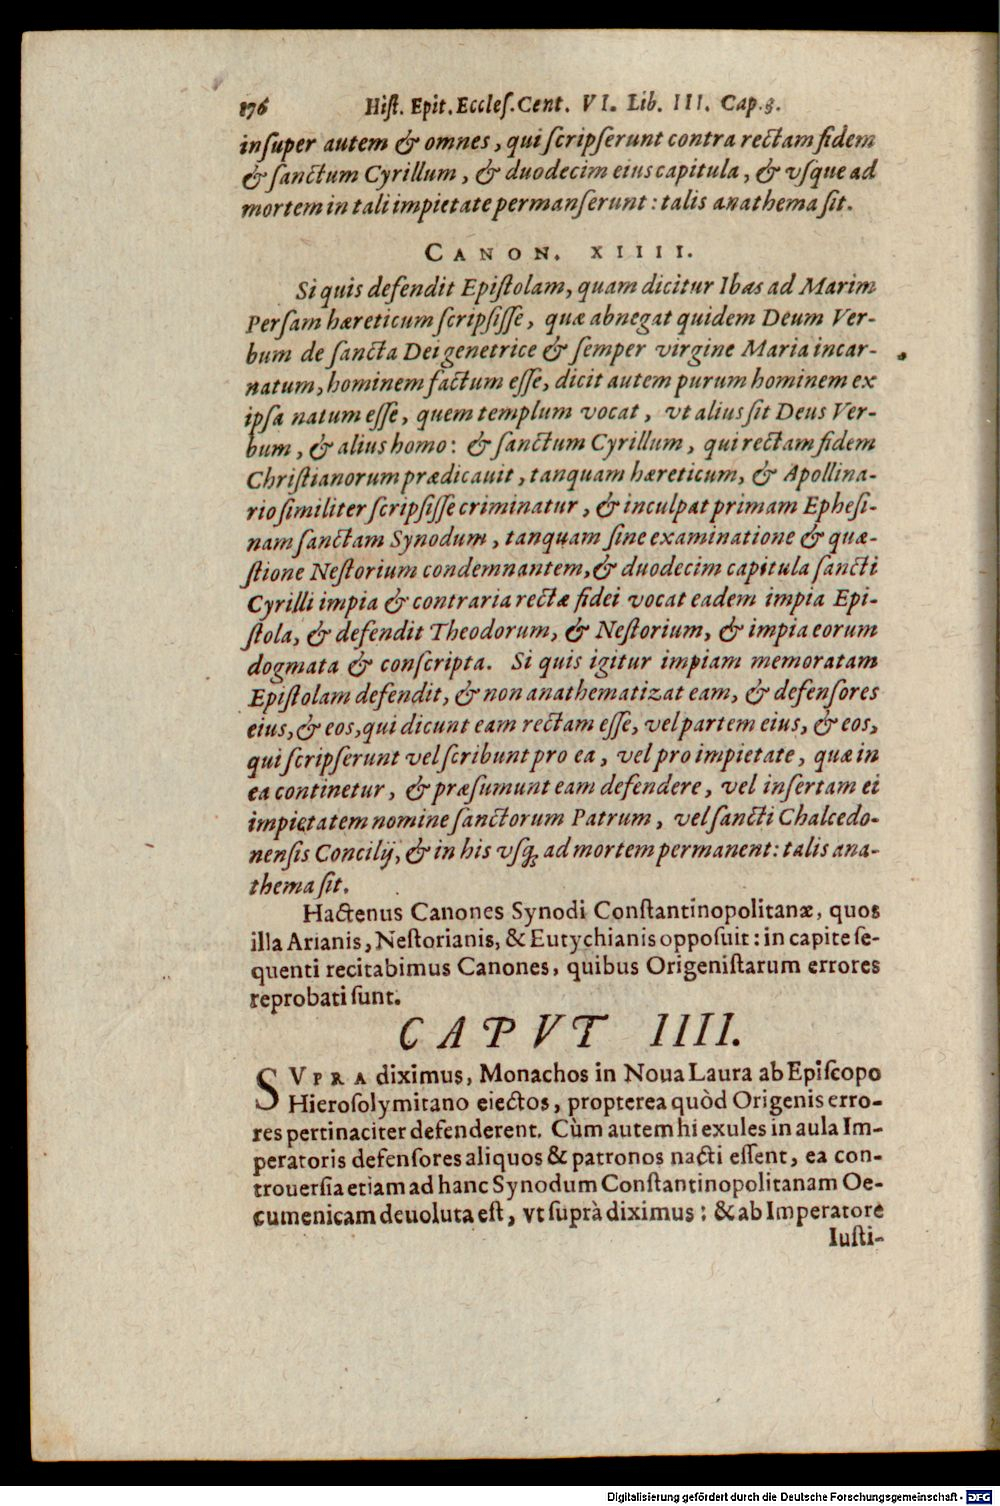 176 Hiſt. Epit. Eccleſ. Cent. VI. Lib. III. Cap. 3.
inſuper autem & omnes, qui ſcripſerunt contra rectam fidem
& ſanctum Cyrillum, & duodecim eius capitula, & vſque ad
mortem in tali impietate permanſerunt: talis anathema ſit.
CANON. XIIII.
Si quis defendit Epiſtolam, quam dicitur Ibas ad Marim
Perſam hæreticum ſcripſiſſe, quæ abnegat quidem Deum Ver-
bum de ſancta Dei genetrice & ſemper virgine Maria incar-
natum, hominem factum eſſe, dicit autem purum hominem ex
ipſa natum eſſe, quem templum vocat, vt alius ſit Deus Ver-
bum, & alius homo: & ſanctum Cyrillum, qui rectam fidem
Chriſtianorum prædicauit, tanquam hæreticum, & Apollina-
rio ſimiliter ſcripſiſſe criminatur, & inculpat primam Epheſi-
nam ſanctam Synodum, tanquam ſine examinatione & quæ-
ſtione Neſtorium condemnantem, & duodecim capitula ſancti
Cyrilli impia & contraria rectæ fidei vocat eadem impia Epi-
ſtola, & defendit Theodorum, & Neſtorium, & impia eorum
dogmata & conſcripta. Si quis igitur impiam memoratam
Epiſtolam defendit, & non anathematizat eam, & defenſores
eius, & eos, qui dicunt eam rectam eſſe, vel partem eius, & eos,
qui ſcripſerunt vel ſcribunt pro ea, vel pro impietate, quæ in
ea continetur, & præſumunt eam defendere, vel inſertam ei
impietatem nomine ſanctorum Patrum, vel ſancti Chalcedo-
nenſis Concilij, & in his vſq; ad mortem permanent: talis ana-
thema ſit.
Hactenus Canones Synodi Conſtantinopolitanæ, quos
illa Arianis, Neſtorianis, & Eutychianis oppoſuit: in capite ſe-
quenti recitabimus Canones, quibus Origeniſtarum errores
reprobati ſunt.
CAPVT IIII.
SVPRA diximus, Monachos in Noua Laura ab Epiſcopo
Hieroſolymitano eiectos, propterea quòd Origenis erro-
res pertinaciter defenderent. Cùm autem hi exules in aula Im-
peratoris defenſores aliquos & patronos nacti eſſent, ea con-
trouerſia etiam ad hanc Synodum Conſtantinopolitanam Oe-
cumenicam deuoluta eſt, vt ſuprà diximus: & ab Imperatore
Iuſti-
Digitalisierung gefördert durch die Deutsche Forschungsgemeinschaft - DFG